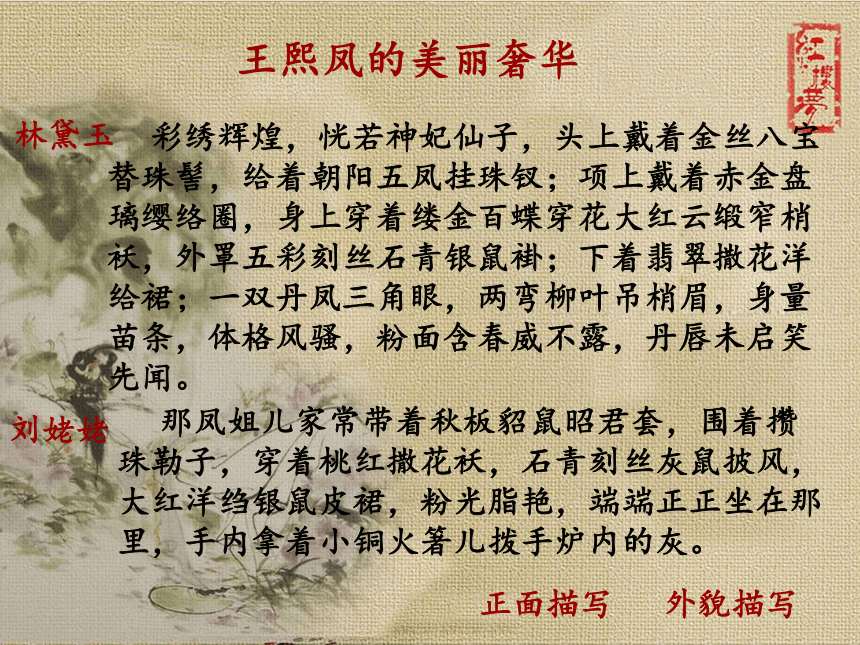 王熙凤的美丽奢华
红楼梦
林黛玉 彩绣辉煌，恍若神妃仙子，头上戴着金丝八宝
替珠髻，给着朝阳五凤挂珠钗；项上戴着赤金盘
璃缨络圈，身上穿着缕金百蝶穿花大红云缎窄梢
袄，外罩五彩刻丝石青银鼠褂；下着翡翠撒花洋
给裙；一双丹凤三角眼，两弯柳叶吊梢眉，身量
苗条，体格风骚，粉面含春威不露，丹唇未启笑
先闻。
刘姥姥 那凤姐儿家常带着秋板貂鼠昭君套，围着攒
珠勒子，穿着桃红撒花袄，石青刻丝灰鼠披风，
大红洋绉银鼠皮裙，粉光脂艳，端端正正坐在那
里，手内拿着小铜火箸儿拨手炉内的灰。
正面描写 外貌描写